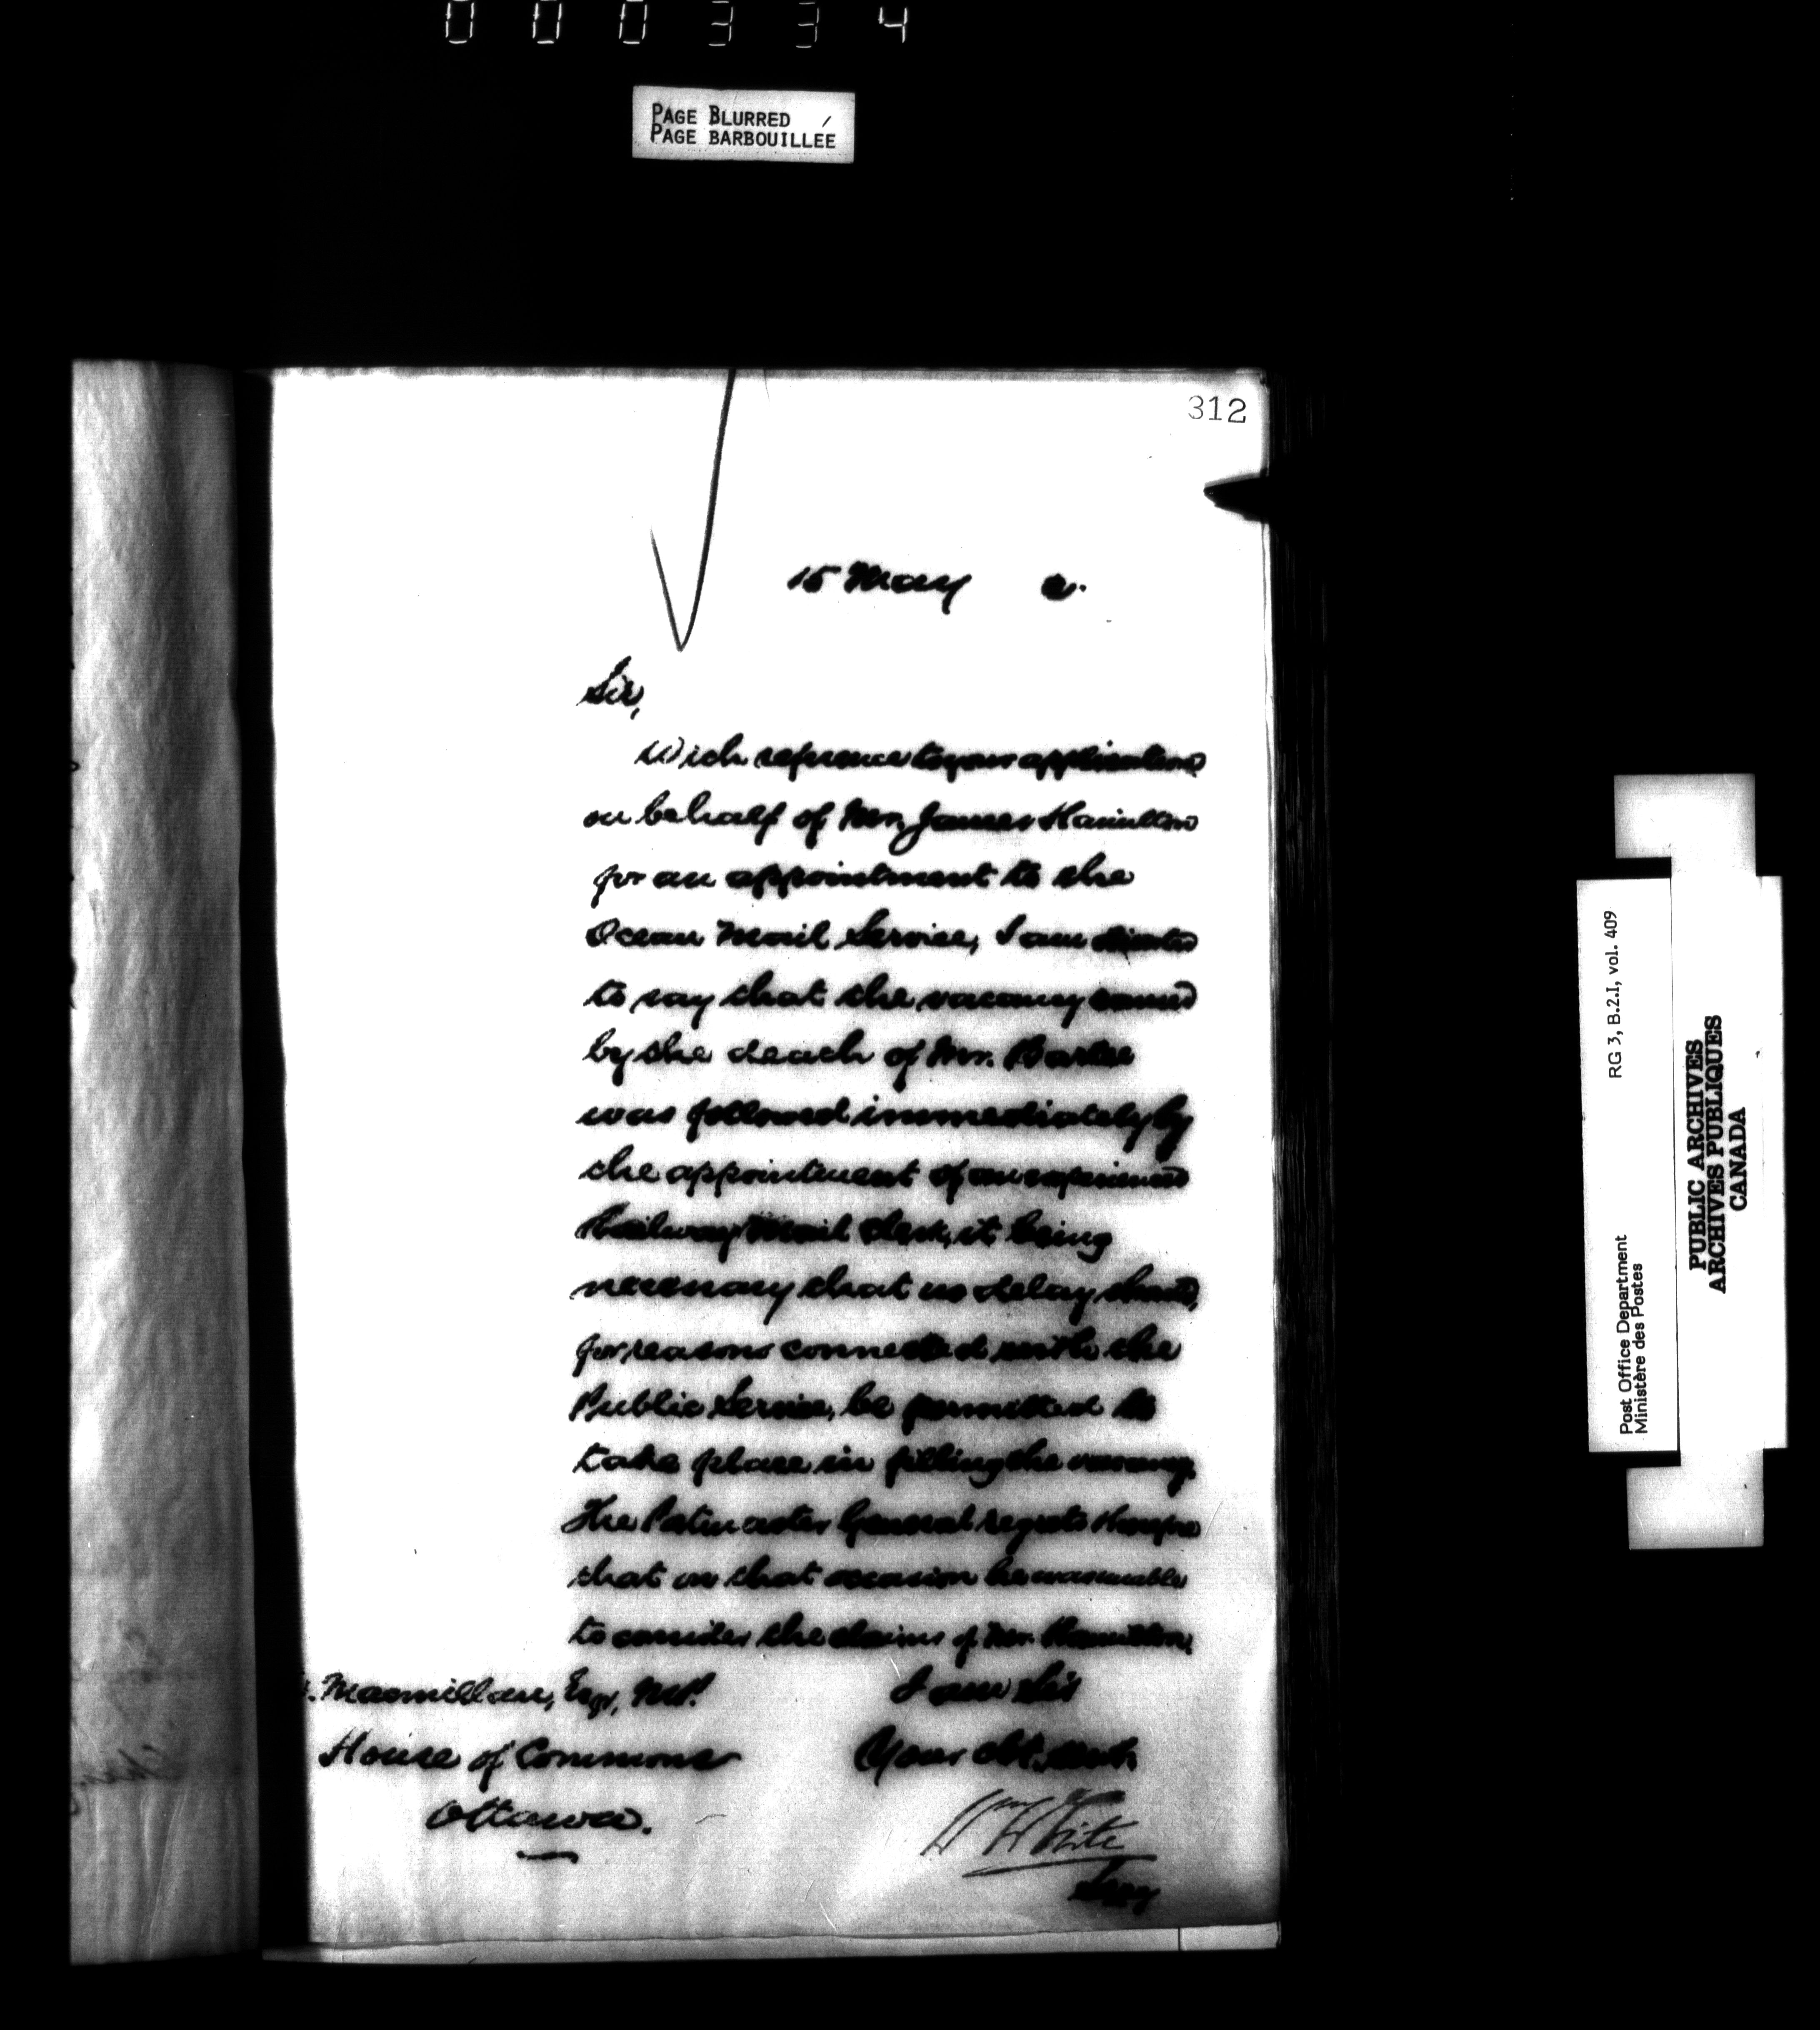 000334
PAGE BLURRED
PAGE BARBOUILLÉE
312
15 May
Sir,
With reference to your application
on behalf of Mr. James Hamilton
for an appointment to the
Ocean Mail Service, I am directed
to say that the vacancy caused
by the death of Mr.
was followed immediately by
the appointment of an experienced
Railway Mail Clerk, it being
necessary that no delay should,
for reasons connected with the
Public Service, be permitted to
take place in filling the vacancy.
The Postmaster General regrets therefore
that on that occasion he was unable
to consider the claims of Mr. Hamilton.
I am Sir
Your obt. servt.
Wm White
Secy
Macmillan, Esqr, M.P.
House of Commons
Ottawa.
RG 3, B.2.I, vol. 409
Post Office Department
Ministère des Postes
PUBLIC ARCHIVES
ARCHIVES PUBLIQUES
CANADA